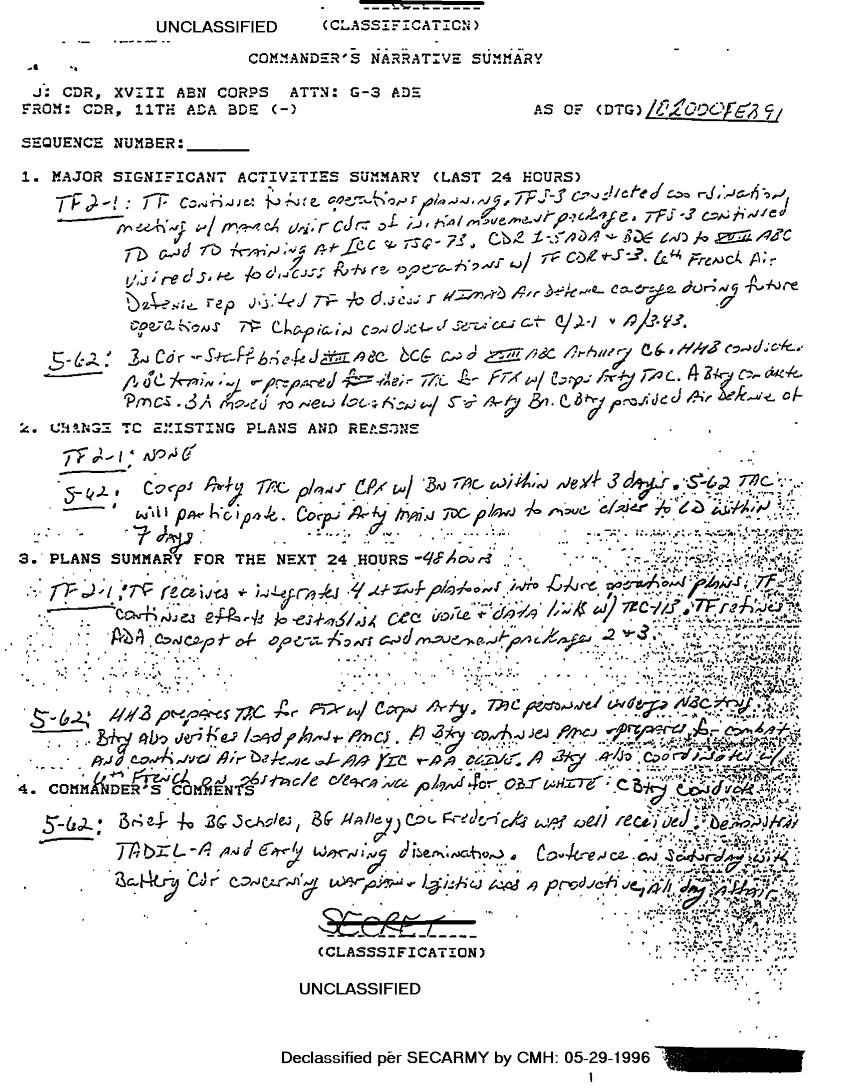 UNCLASSIFIED (CLASSIFICATION)
COMMANDER'S NARRATIVE SUMMARY
J: CDR, XVIII ABN CORPS ATTN: G-3 ADE
FROM: CDR, 11TH ADA BDE (-) AS OF (DTG) 102000FEB91
SEQUENCE NUMBER:
1. MAJOR SIGNIFICANT ACTIVITIES SUMMARY (LAST 24 HOURS)
TF 2-1: TF continues future operations planning. TFS-3 conducted coordination
meeting w/ march unit cdrs of initial movement package. TFS-3 continued
TD and TD training at ICC & TSQ-73. CDR 1-5 ADA & BDE LNO to XVIII ABC
visited site to discuss future operations w/ TF CDR + S-3. 6th French Air
Defense rep visited TF to discuss HIMAD Air Defense coverage during future
operations TF Chaplain conducted services at C/2-1 & A/3-43.
5-62: Bn Cdr + Staff briefed XVIII ABC DCG and XVIII ABC Artillery CG. HHB conducte
NBC training + prepared for their TAC for FTX w/ Corps Arty TAC. A Btry conducte
Pmcs. 3A moved to new location w/ 5th Arty Bn. C Btry provided Air Defense of
2. CHANGE TO EXISTING PLANS AND REASONS
TF 2-1: NONE
5-62: Corps Arty TAC plans CPX w/ Bn TAC within next 3 days. 5-62 TAC
will participate. Corps Arty main TOC plans to move closer to LD within
7 days
3. PLANS SUMMARY FOR THE NEXT 24 HOURS -48 hours
TF 2-1: TF receives + integrates 4 Lt Inf platoons into future operations plans. TF
continues efforts to establish CEC voice + data link w/ TPS-113. TF refines
ADA concept of operations and movement packages 2 + 3.
5-62: HHB prepares TAC for FTX w/ Corps Arty. TAC personnel undergo NBC trng.
Btry also verifies load plans + Pmcs. A Btry continues Pmcs + prepares for combat
and continues Air Defense of AA + AA OLIVE. A Btry Also coordinates w/
6th French on obstacle clearance plans for OBJ WHITE. C Btry conducts
4. COMMANDER'S COMMENTS
5-62: Brief to BG Scholes, BG Halley, Col Fredericks was well received. Demonstrated
TADIL-A and Early Warning disemination. Conference on Saturday with
Battery Cdr concerning warplans + logistics was a productive, all day affair
SECRET
(CLASSSIFICATION)
UNCLASSIFIED
Declassified per SECARMY by CMH: 05-29-1996
1